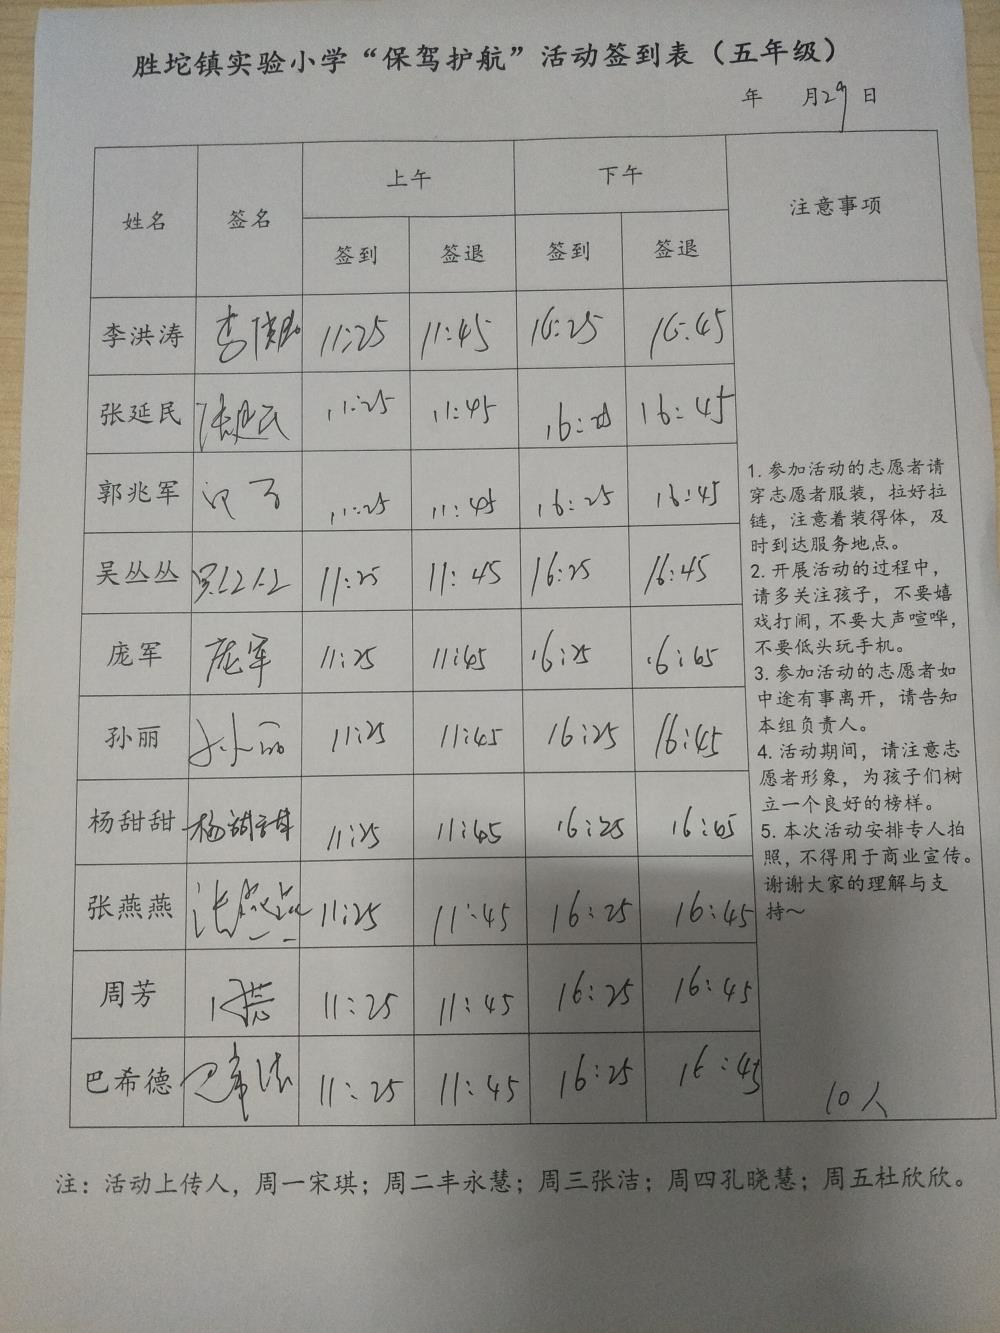 胜坨镇实验小学“保驾护航”活动签到表（五年级）
年 月29日
姓名 签名 上午 下午 注意事项
签到 签退 签到 签退
李洪涛 11:25 11:45 16:25 16:45
张延民 张延民 11:25 11:45 16:25 16:45
郭兆军 11:25 11:45 16:25 16:45
吴丛丛 吴丛丛 11:25 11:45 16:25 16:45
庞军 庞军 11:25 11:45 16:25 16:45
孙丽 孙丽 11:25 11:45 16:25 16:45
杨甜甜 杨甜甜 11:25 11:45 16:25 16:45
张燕燕 张燕燕 11:25 11:45 16:25 16:45
周芳 11:25 11:45 16:25 16:45
巴希德 巴希德 11:25 11:45 16:25 16:45
1. 参加活动的志愿者请
穿志愿者服装，拉好拉
链，注意着装得体，及
时到达服务地点。
2. 开展活动的过程中，
请多关注孩子，不要嬉
戏打闹，不要大声喧哗，
不要低头玩手机。
3. 参加活动的志愿者如
中途有事离开，请告知
本组负责人。
4. 活动期间，请注意志
愿者形象，为孩子们树
立一个良好的榜样。
5. 本次活动安排专人拍
照，不得用于商业宣传。
谢谢大家的理解与支
持～
10人
注：活动上传人，周一宋琪；周二丰永慧；周三张洁；周四孔晓慧；周五杜欣欣。